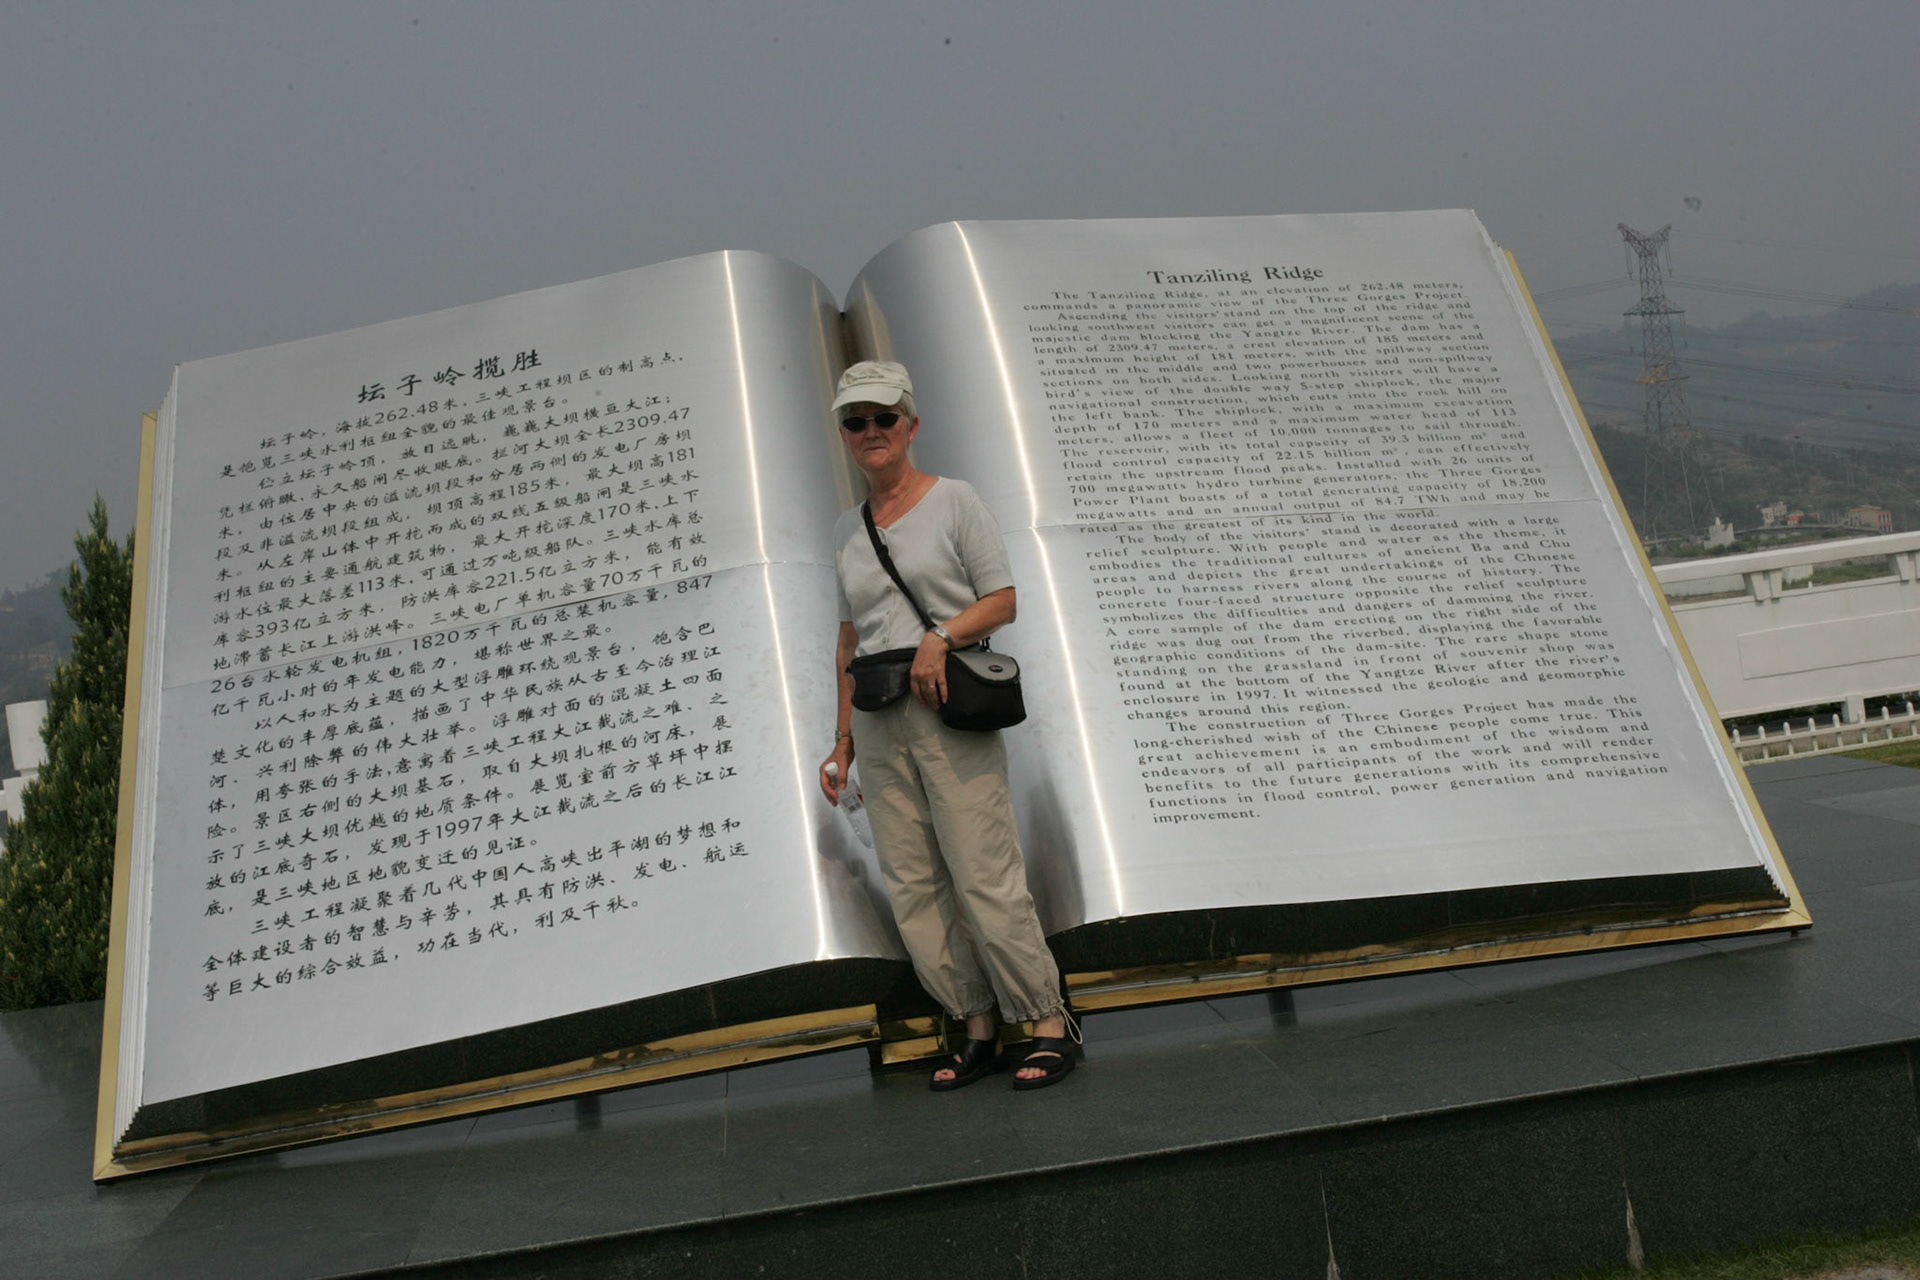 坛子岭揽胜
坛子岭，海拔262.48米，三峡工程坝区的制高点，
是饱览三峡水利枢纽全貌的最佳观景台。
伫立坛子岭顶，放目远眺，巍巍大坝横亘大江；
凭栏俯瞰，永久船闸尽收眼底。拦河大坝全长2309.47
米，由位居中央的溢流坝段和分居两侧的发电厂房坝
段及非溢流坝段组成，坝顶高程185米，最大坝高181
米。从左岸山体中开挖而成的双线五级船闸是三峡水
利枢纽的主要通航建筑物，最大开挖深度170米，上下
游水位最大落差113米，可通过万吨级船队。三峡水库总
库容393亿立方米，防洪库容221.5亿立方米，能有效
地滞蓄长江上游洪峰。三峡电厂单机容量70万千瓦的
26台水轮发电机组，1820万千瓦的总装机容量，847
亿千瓦小时的年发电能力，堪称世界之最。
以人和水为主题的大型浮雕环绕观景台，饱含巴
楚文化的丰厚底蕴，描画了中华民族从古至今治理江
河、兴利除弊的伟大壮举。浮雕对面的混凝土四面
体，用夸张的手法，意寓着三峡工程大江截流之难、之
险。景区右侧的大坝基石，取自大坝扎根的河床，展
示了三峡大坝优越的地质条件。展览室前方草坪中摆
放的江底奇石，发现于1997年大江截流之后的长江江
底，是三峡地区地貌变迁的见证。
三峡工程凝聚着几代中国人高峡出平湖的梦想和
全体建设者的智慧与辛劳，其具有防洪、发电、航运
等巨大的综合效益，功在当代，利及千秋。
Tanziling Ridge
The Tanziling Ridge, at an elevation of 262.48 meters,
commands a panoramic view of the Three Gorges Project.
Ascending the visitors' stand on the top of the ridge and
looking southwest visitors can get a magnificent scene of the
majestic dam blocking the Yangtze River. The dam has a
length of 2309.47 meters, a crest elevation of 185 meters and
a maximum height of 181 meters, with the spillway section
situated in the middle and two powerhouses and non-spillway
sections on both sides. Looking north visitors will have a
bird's view of the double way 5-step shiplock, the major
navigational construction, which cuts into the rock hill on
the left bank. The shiplock, with a maximum excavation
depth of 170 meters and a maximum water head of 113
meters, allows a fleet of 10,000 tonnages to sail through.
The reservoir, with its total capacity of 39.3 billion m³ and
flood control capacity of 22.15 billion m³, can effectively
retain the upstream flood peaks. Installed with 26 units of
700 megawatts hydro turbine generators, the Three Gorges
Power Plant boasts of a total generating capacity of 18,200
megawatts and an annual output of 84.7 TWh and may be
rated as the greatest of its kind in the world.
The body of the visitors' stand is decorated with a large
relief sculpture. With people and water as the theme, it
embodies the traditional cultures of ancient Ba and Chu
areas and depicts the great undertakings of the Chinese
people to harness rivers along the course of history. The
concrete four-faced structure opposite the relief sculpture
symbolizes the difficulties and dangers of damming the river.
A core sample of the dam erecting on the right side of the
ridge was dug out from the riverbed, displaying the favorable
geographic conditions of the dam-site. The rare shape stone
standing on the grassland in front of souvenir shop was
found at the bottom of the Yangtze River after the river's
enclosure in 1997. It witnessed the geologic and geomorphic
changes around this region.
The construction of Three Gorges Project has made the
long-cherished wish of the Chinese people come true. This
great achievement is an embodiment of the wisdom and
endeavors of all participants of the work and will render
benefits to the future generations with its comprehensive
functions in flood control, power generation and navigation
improvement.